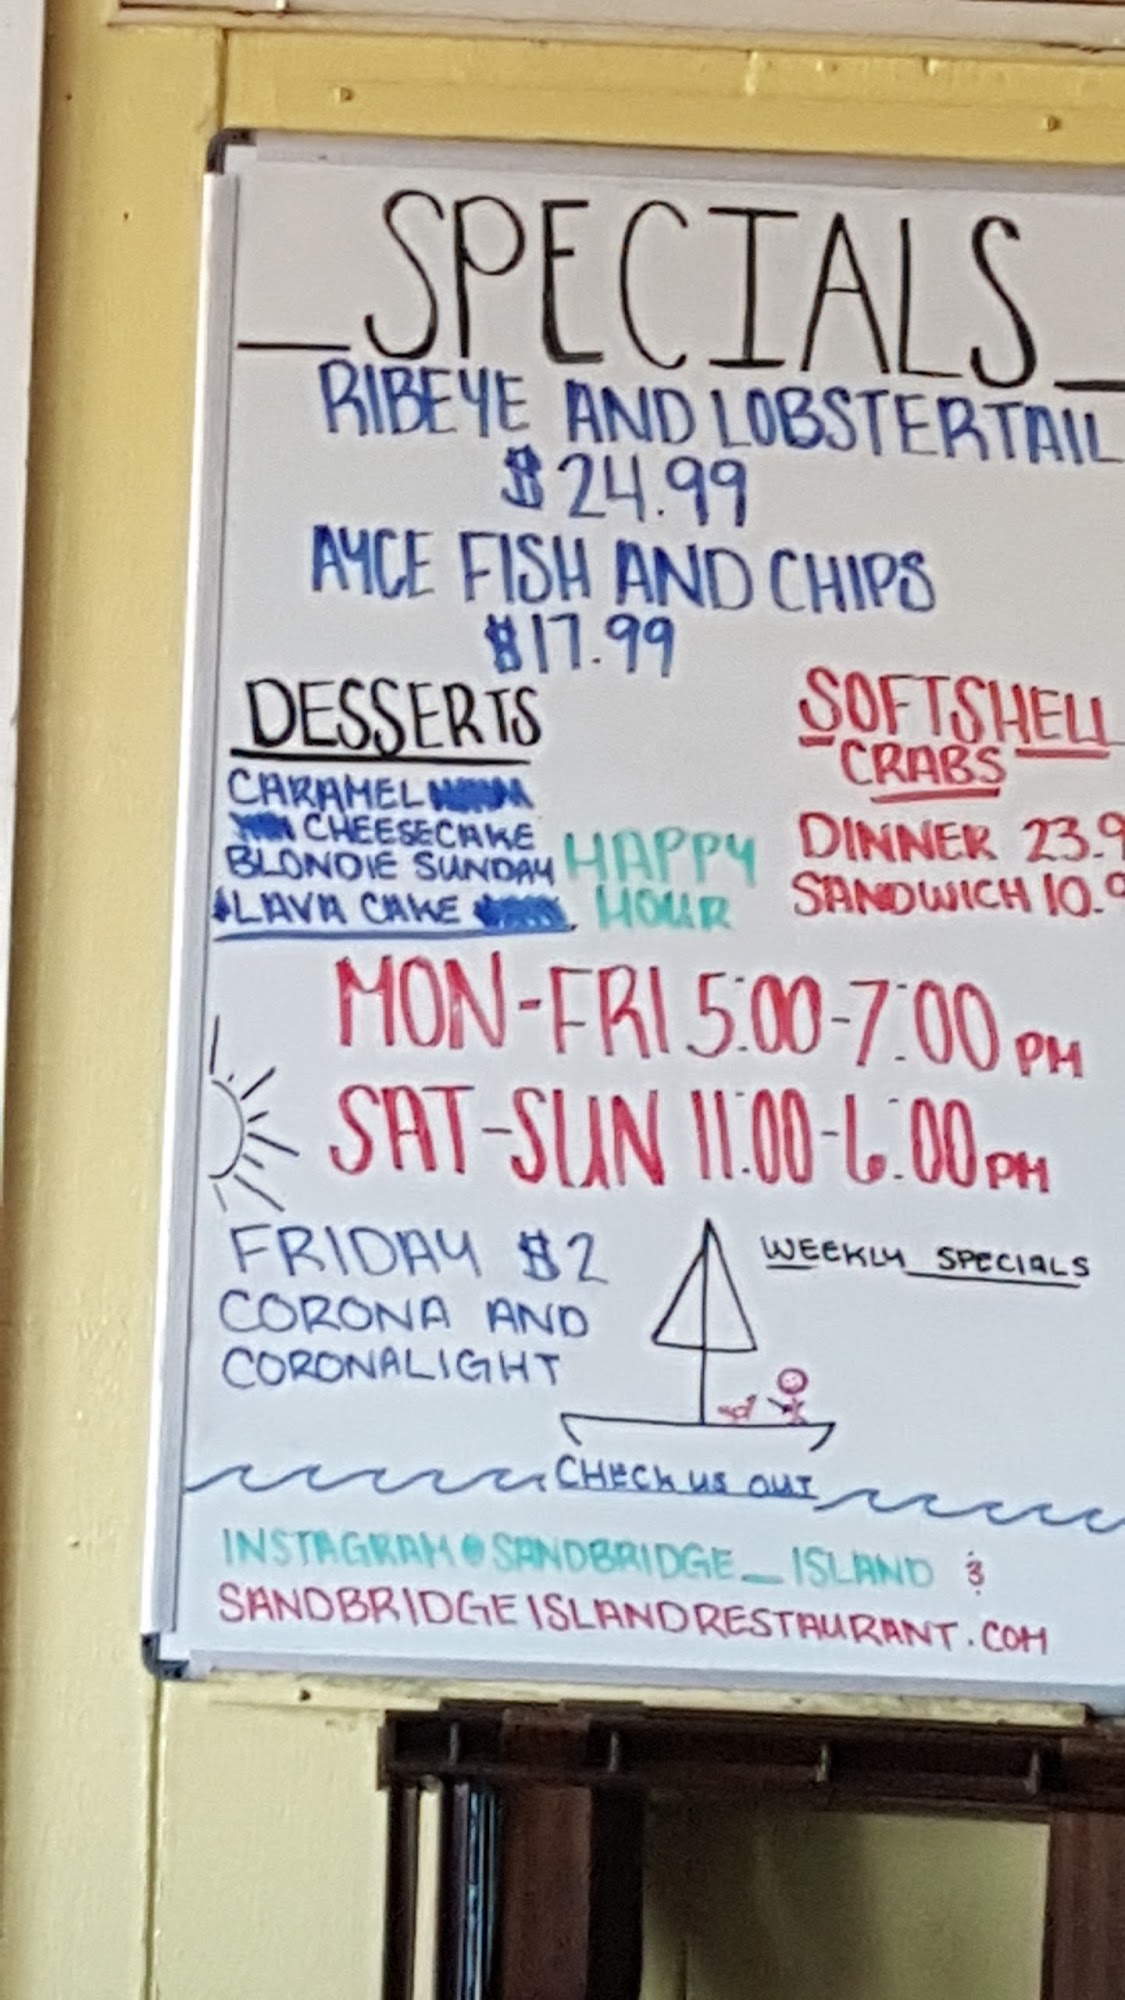 SPECIALS
RIBEYE AND LOBSTERTAIL
$24.99
AYCE FISH AND CHIPS
$17.99
DESSERTS
CARAMEL
CHEESECAKE
BLONDIE SUNDAY
LAVA CAKE
HAPPY
HOUR
SOFTSHELL
CRABS
DINNER 23.9
SANDWICH 10.9
MON-FRI 5:00-7:00 PM
SAT-SUN 11:00-6:00 PM
FRIDAY $2
CORONA AND
CORONALIGHT
WEEKLY SPECIALS
CHECK US OUT
INSTAGRAM@SANDBRIDGE_ISLAND &
SANDBRIDGEISLANDRESTAURANT.COM